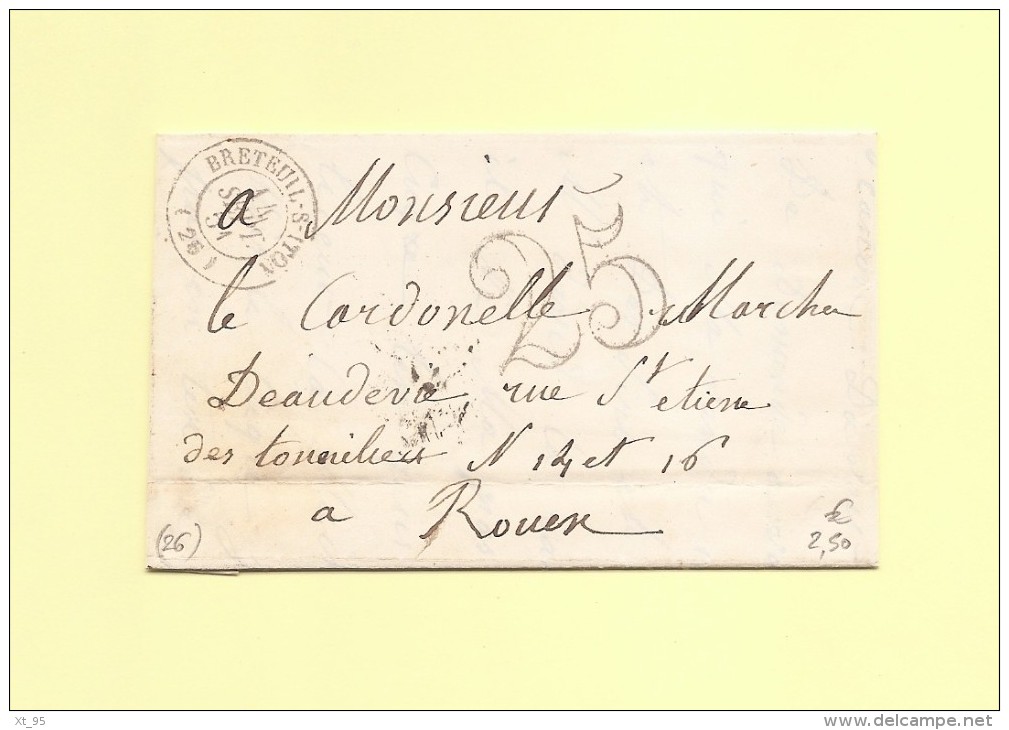 BRETEUIL-S-ITON
(25)
SEPT
51
25
a Monsieur
le Cardonelle Marchan
Deaudevie rue St etiene
des tonniliers N 14 et 16
a Rouen
(26)
€
2,50
Xt_95
delcampe.net